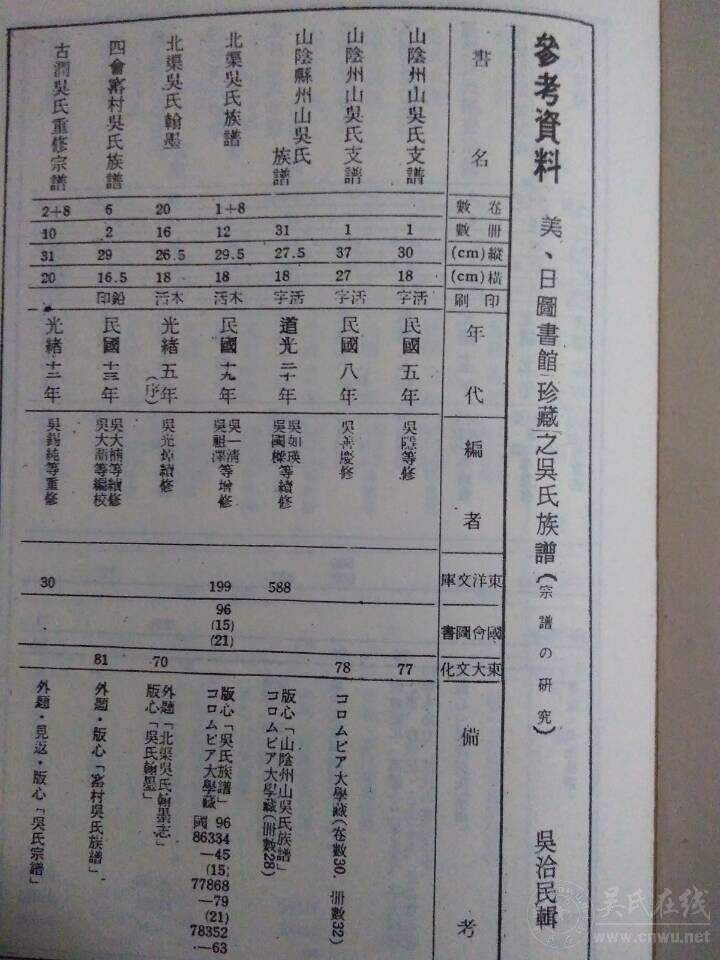 參考資料 美、日圖書館珍藏之吳氏族譜(宗譜の研究) 吳治民輯
書名 卷數 冊數 縱(cm) 橫(cm) 印刷 年代 編者 東洋文庫 國會圖書 東大文化 備考
山陰州山吳氏支譜 1 30 18 活字 民國五年 吳隱等修 77
山陰州山吳氏支譜 1 37 27 活字 民國八年 吳善慶修 78 コロムビア大學藏(卷數30. 冊數32)
山陰縣州山吳氏族譜 31 27.5 18 活字 道光二十年 吳如瑛 吳國樑等續修 588 版心「山陰州山吳氏族譜」 コロムビア大學藏(冊數28)
北渠吳氏族譜 1+8 12 29.5 18 木活 民國十九年 吳一清 吳祖澤等增修 199 96 (15) (21) 版心「吳氏族譜」 コロムビア大學藏 國 96 86334—45 (15; 77868—79 (21) 78352—63
北渠吳氏翰墨 20 16 26.5 18 木活 光緒五年(序) 吳光焯續修 70 外題「北渠吳氏翰墨志」 版心「吳氏翰墨」
四會窰村吳氏族譜 6 2 29 16.5 鉛印 民國十三年 吳大楠等續修 吳大誥等編校 81 外題・版心「窰村吳氏族譜」
古潤吳氏重修宗譜 2+8 10 31 20 光緒十二年 吳錫純等重修 30 外題・見返・版心「吳氏宗譜」
吴氏在线
www.cnwu.net